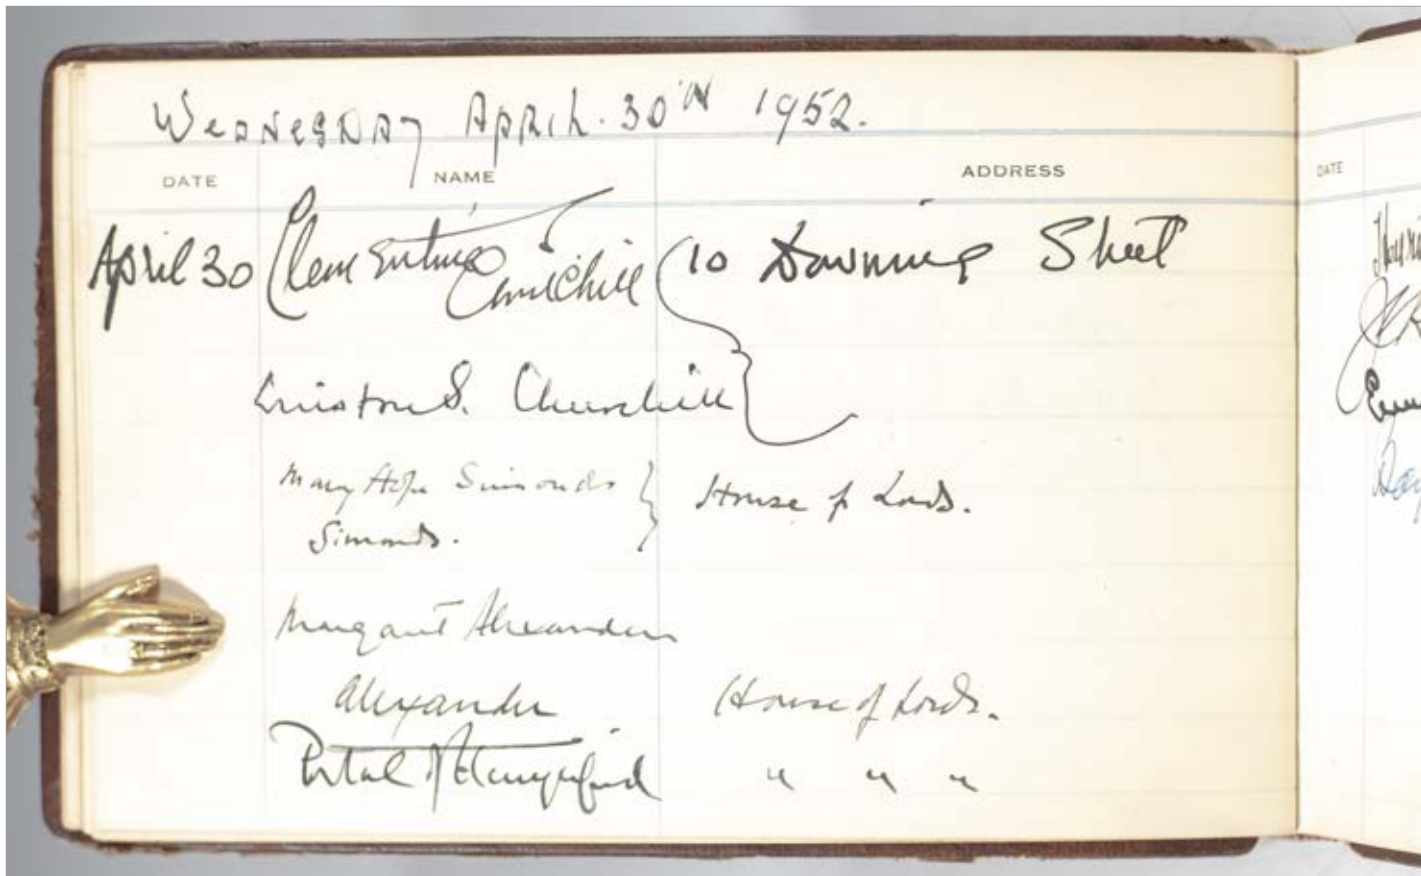 Wednesday April. 30th 1952.
DATE NAME ADDRESS DATE
April 30 Clementine Churchill 10 Downing Street
Winston S. Churchill
Mary Hope Simonds House of Lords.
Simonds.
Margaret Alexander
Alexander House of Lords.
Portal of Hungerford " " "